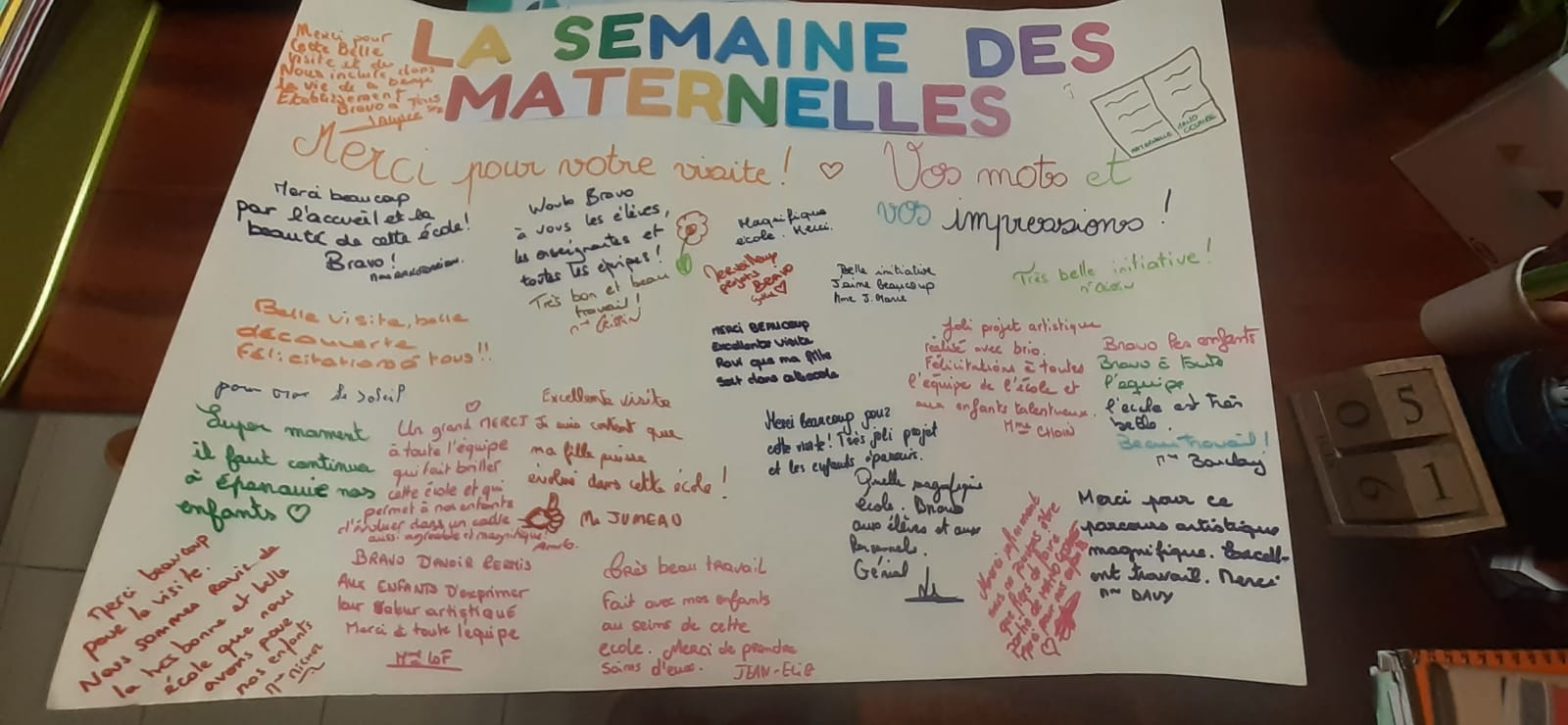 LA SEMAINE DES
MATERNELLES
Merci pour
Cette Belle
visite et de
Nous inclure dans
la vie de
Etablissement
Bravo à Tous
MATERNELLE
Merci pour votre visite !
Vos mots et
vos impressions !
Merci beaucoup
par l'accueil et la
beauté de cette école !
Bravo !
Bravo
à vous les élèves,
les enseignantes et
toutes les équipes !
Très bon et beau
travail !
Magnifique
école. Merci.
projets
BRAVO
Belle initiative
J'aime beaucoup
Mme J. Marie
Très belle initiative !
Belle visite, belle
découverte
Félicitations à tous !!
MERCI BEAUCOUP
Excellente visite
Ravi que ma fille
soit dans
Joli projet artistique
réalisé avec brio.
Félicitations à toutes
l'équipe de l'école et
aux enfants talentueux.
Mme CHOIN
Bravo les enfants
Bravo à toute
l'équipe
l'école est très
belle.
Beau travail !
Mme Barclay
pour le soleil
Super moment
il faut continue
à épanouie nos
enfants
Un grand MERCI
à toute l'équipe
qui fait briller
cette école et qui
permet à nos enfants
d'évoluer dans un cadre
aussi agréable et magnifique.
Excellente visite
Je suis content que
ma fille puisse
évolué dans cette école !
Mr JUMEAU
Merci beaucoup pour
cette visite ! Très joli projet
et les enfants épanouis.
Quelle magnifique
école. Bravo
aux élèves et aux
Personnels.
Génial
Merci infiniment
nous ne pouvons être
que fiers de faire
partie de votre
pour nos enfants
Merci pour ce
parcours artistique
magnifique. Excell-
ent travail. Merci
Mme DAVY
Merci beaucoup
pour la visite.
Nous sommes ravie de
la très bonne et belle
école que nous
avons pour
nos enfants
BRAVO D'AVOIR PERMIS
AUX ENFANTS D'exprimer
leur valeur artistique
Merci à toute l'équipe
Mme LOF
Très beau travail
Fait avec mes enfants
au seins de cette
ecole. Merci de prendre
soins d'eux.
JEAN-ELIE
0 5
9 1